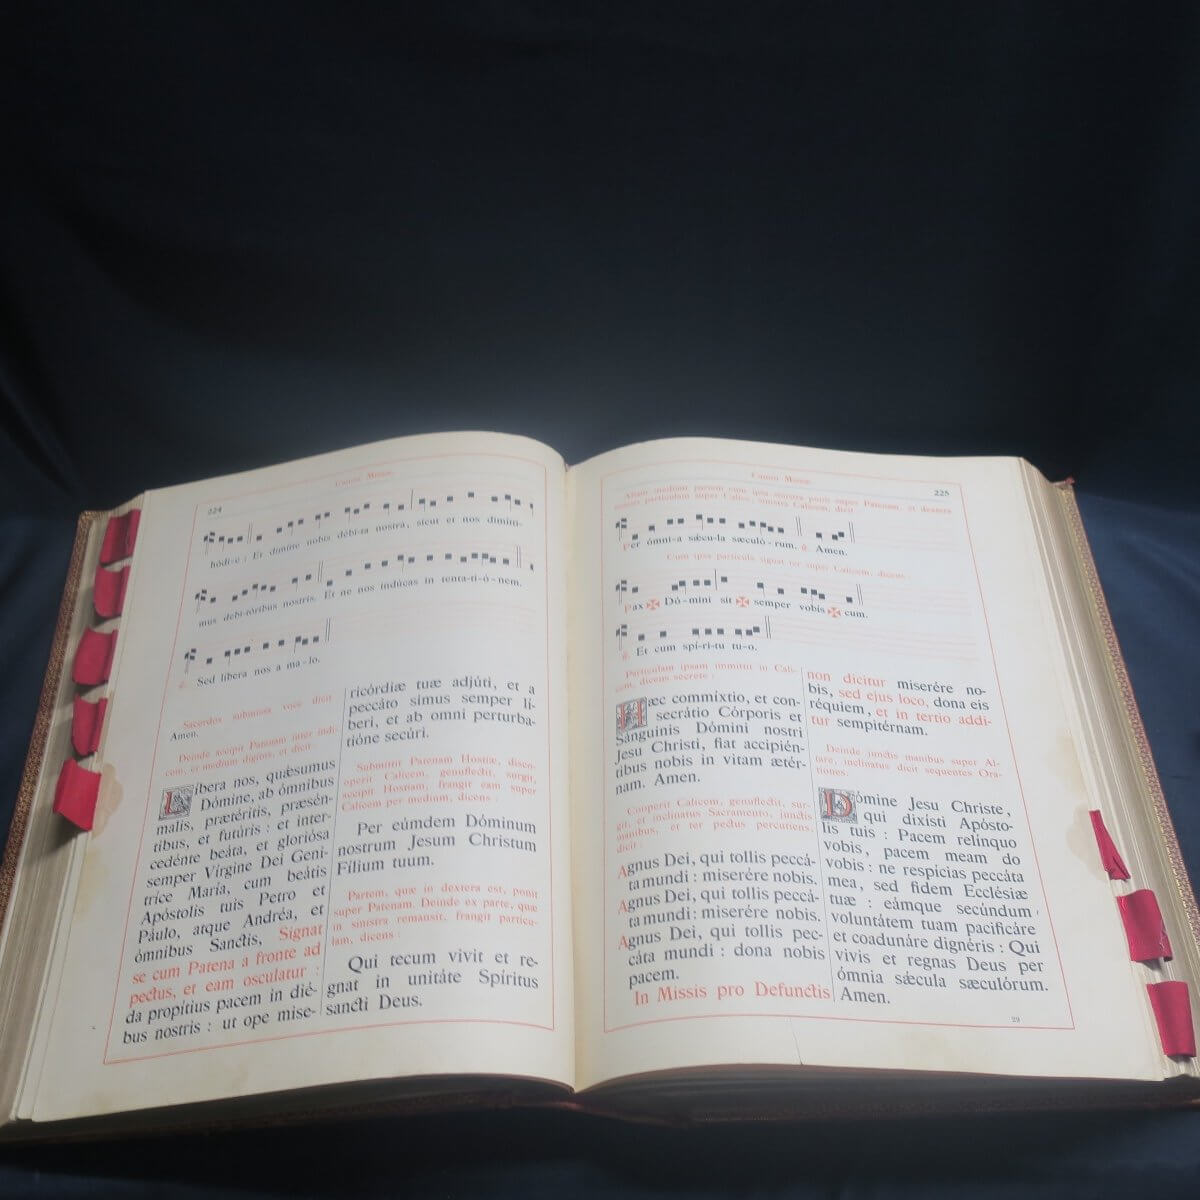 224
Canon Missæ.
hódi-e : Et dimítte nobis débi-ta nostra, sicut et nos dimítti-
mus debi-tóribus nostris. Et ne nos indúcas in tenta-ti-ó-nem.
℟. Sed líbera nos a ma-lo.
Sacerdos submissa voce dicit
Amen.
Deinde accipit Patenam inter indi-
cem, et medium digitos, et dicit:
Líbera nos, quǽsumus
Dómine, ab ómnibus
malis, prætéritis, præsén-
tibus, et futúris : et inter-
cedénte beáta, et gloriósa
semper Vírgine Dei Geni-
tríce María, cum beátis
Apóstolis tuis Petro et
Páulo, atque Andréa, et
ómnibus Sanctis, Signat
se cum Patena a fronte ad
pectus, et eam osculatur :
da propítius pacem in dié-
bus nostris : ut ope mise-
ricórdiæ tuæ adjúti, et a
peccáto simus semper lí-
beri, et ab omni perturba-
tióne secúri.
Submittit Patenam Hostiæ, disco-
operit Calicem, genuflectit, surgit,
accipit Hostiam, frangit eam super
Calicem per medium, dicens :
Per eúmdem Dóminum
nostrum Jesum Christum
Fílium tuum.
Partem, quæ in dextera est, ponit
super Patenam. Deinde ex parte, quæ
in sinistra remansit, frangit particu-
lam, dicens :
Qui tecum vivit et re-
gnat in unitáte Spíritus
sancti Deus.
Canon Missæ.
225
Aliam mediam partem cum ipsa sinistra ponit super Patenam, et dextera
tenens particulam super Calicem, sinistra Calicem, dicit
Per ómni-a sǽcu-la sæculó-rum. ℟. Amen.
Cum ipsa particula signat ter super Calicem, dicens :
Pax ✠ Dó-mini sit ✠ semper vobís ✠ cum.
℟. Et cum spí-ri-tu tu-o.
Particulam ipsam immittit in Cali-
cem, dicens secrete :
Hæc commíxtio, et con-
secrátio Córporis et
Sánguinis Dómini nostri
Jesu Christi, fiat accipién-
tibus nobis in vitam ætér-
nam. Amen.
Cooperit Calicem, genuflectit, sur-
git, et inclinatus Sacramento, junctis
manibus, et ter pectus percutiens,
dicit :
Agnus Dei, qui tollis peccá-
ta mundi : miserére nobis.
Agnus Dei, qui tollis peccá-
ta mundi : miserére nobis.
Agnus Dei, qui tollis pec-
cáta mundi : dona nobis
pacem.
In Missis pro Defunctis
non dicitur miserére no-
bis, sed ejus loco, dona eis
réquiem, et in tertio addi-
tur sempitérnam.
Deinde junctis manibus super Al-
tare, inclinatus dicit sequentes Ora-
tiones.
Dómine Jesu Christe,
qui dixísti Apósto-
lis tuis : Pacem relínquo
vobis, pacem meam do
vobis : ne respícias peccáta
mea, sed fidem Ecclésiæ
tuæ : eámque secúndum
voluntátem tuam pacificáre
et coadunáre dignéris : Qui
vivis et regnas Deus per
ómnia sǽcula sæculórum.
Amen.
29